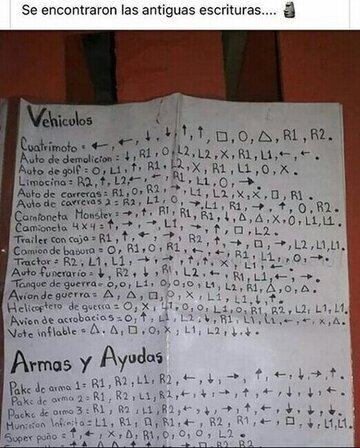 Se encontraron las antiguas escrituras.... 🗿
Vehiculos
Cuatrimoto = ←, ←, ↓, ↓, ↑, ↑, □, O, △, R1, R2.
Auto de demolicion = ↓, R1, O, L2, L2, X, R1, L1, ←, ←.
Auto de golf = O, L1, ↑, R1, L2, X, R1, L1, O, X.
Limocina = R2, ↑, L2, ←, ←, R1, L1, O, →.
Auto de carreras = R1, O, R2, →, L1, L2, X, X, □, R1.
Auto de carreras 2 = R2, L1, O, →, L1, R1, →, ↑, O, R2.
Camioneta Monster = →, ↑, R1, R1, R1, ↓, △, △, X, O, L1, L1.
Camioneta 4x4 =
Trailer con caja = R1, ↑, ←, →, R2, ↑, →, □, →, L2, L1, L1.
Camion de basura = O, R1, O, R1,
Tractor = R2, L1, L1, →,
Auto funerario = ↓, R2, ↓, R1, L2,
Tanque de guerra = O, O, L1, O, O, O, L1, L2, R1, △, O, △.
Avion de guerra = △, △, □, O, X, L1, L1, ↓, ↑.
Helicoptero de guerra = O, X, L1, O, O, L1, O, R1, R2, L2, L1, L1.
Avion de acrobacias = O, ↑, L1, L2, ↓, R1, L1, L1, ←, ←, X, △.
Vote inflable = △, △, □, O, X, L1, L2, ↓, ↓.
Armas y Ayudas
Pakc de arma 1 = R1, R2, L1, R2, ←, ↓, →, ↑, ←, ↓, →, ↑.
Pakc de arma 2 = R1, R2, L1, R2, ←, ↓, →, ↑, ←, ↓, ↓, ←.
Packc de arma 3 = R1, R2, L1, R2, ←, ↓, →, ↑, ←, ↓, ↓, ↓.
Municion Infinita = L1, R1, □, R1, ←, R2, R1, ←, □, ↓, L1, L1.
Super puño = ↑, ←, X, △, R1, O, O, O, L2.